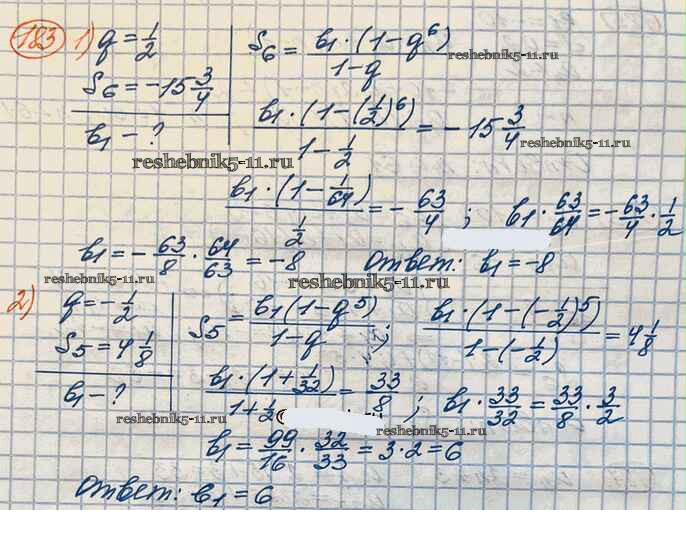 183 1) q = 1/2
S₆ = -15 3/4
b₁ - ?
S₆ = b₁·(1-q⁶) / 1-q
reshebnik5-11.ru
b₁·(1-(1/2)⁶) / 1 - 1/2 = -15 3/4
reshebnik5-11.ru
reshebnik5-11.ru
b₁·(1 - 1/64) / 1/2 = - 63/4 ; b₁ · 63/64 = - 63/4 · 1/2
b₁ = - 63/8 · 64/63 = -8 Ответ: b₁ = -8
reshebnik5-11.ru
reshebnik5-11.ru
2) q = - 1/2
S₅ = 4 1/8
b₁ - ?
S₅ = b₁(1-q⁵) / 1-q ; b₁·(1-(-1/2)⁵) / 1-(-1/2) = 4 1/8
b₁·(1 + 1/32) / 1 + 1/2 = 33/8 ; b₁ · 33/32 = 33/8 · 3/2
reshebnik5-11.ru
reshebnik5-11.ru
b₁ = 99/16 · 32/33 = 3·2 = 6
Ответ: b₁ = 6